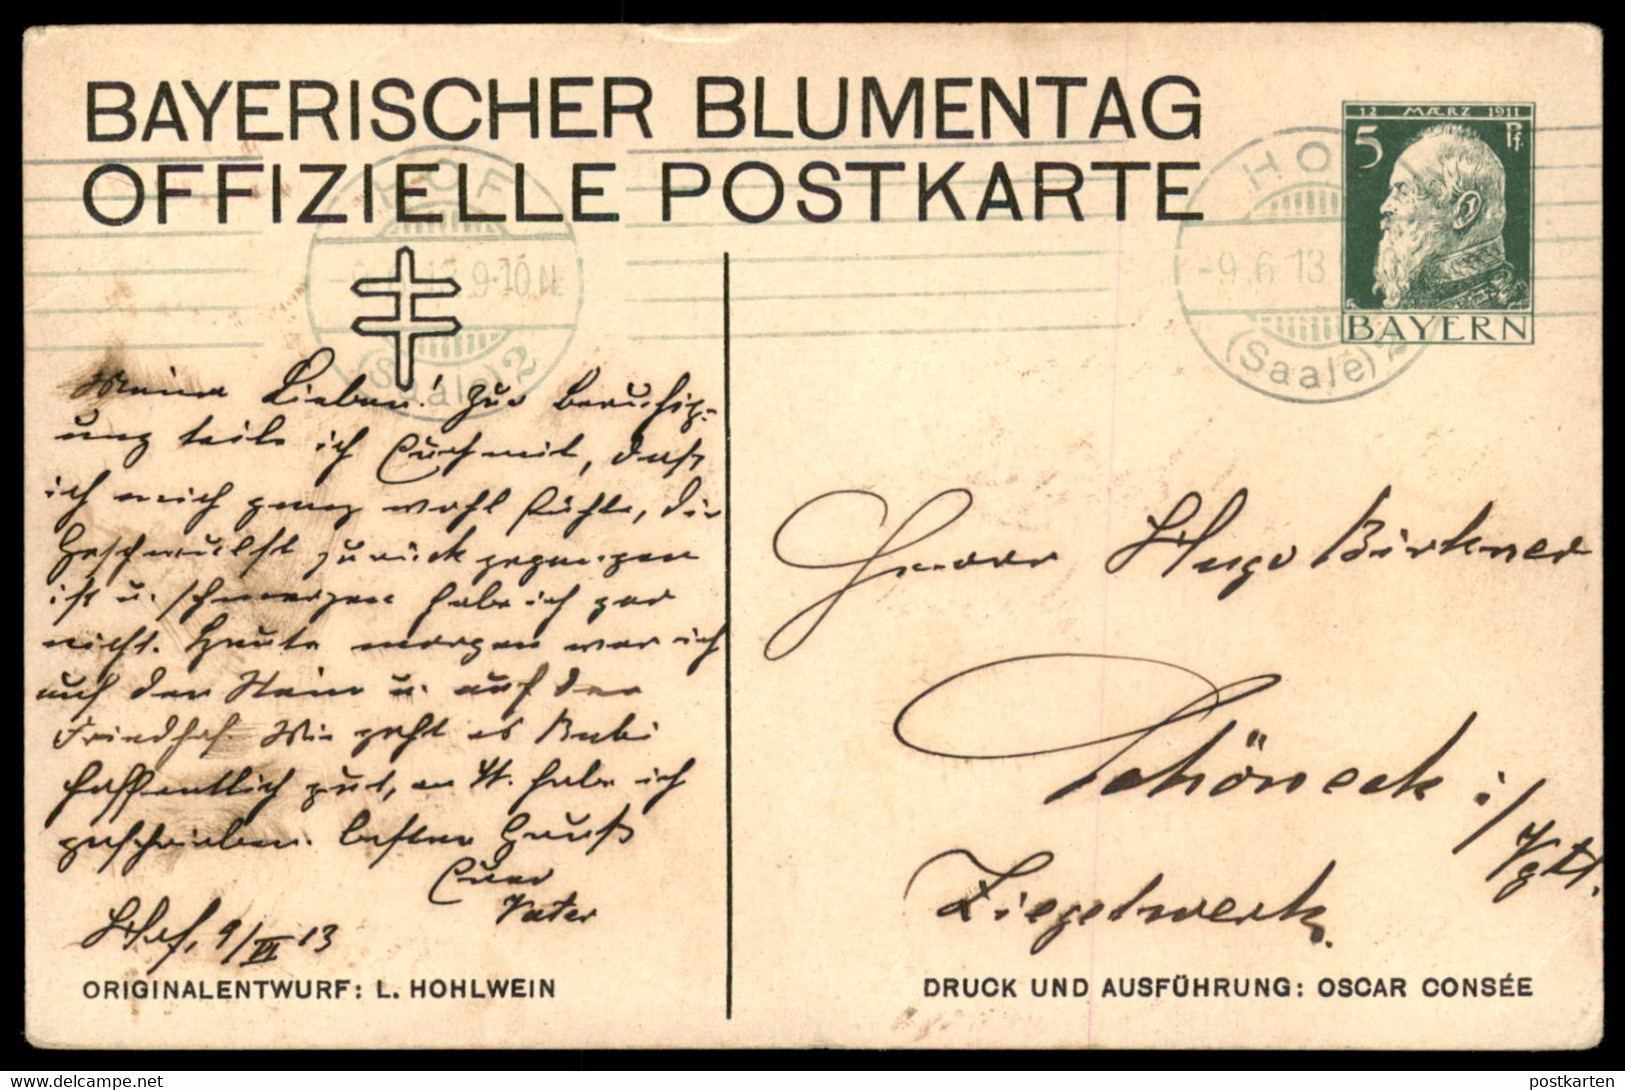 BAYERISCHER BLUMENTAG
OFFIZIELLE POSTKARTE
12 MÆRZ 1911
5 Pf.
BAYERN
HOF
9-10 N.
(Saale) 2
HO
-9.6.13
(Saale) 2
Meine Lieben! Zur Beruhig-
ung teile ich Euch mit, daß
ich mich ganz wohl fühle, die
Geschwulst zurück gegangen
ist u. Schmerzen habe ich gar
nicht. Heute morgen war ich
auf den Stein u. auf den
Friedhof. Wie geht es Bubi
hoffentlich gut, an H. habe ich
geschrieben. Besten Gruß
Euer
Vater
Hof, 9/VI 13
Herrn Hugo Birkner
Schöneck i/Vgtl.
Ziegelwerk.
ORIGINALENTWURF: L. HOHLWEIN
DRUCK UND AUSFÜHRUNG: OSCAR CONSÉE
delcampe.net
postkarten